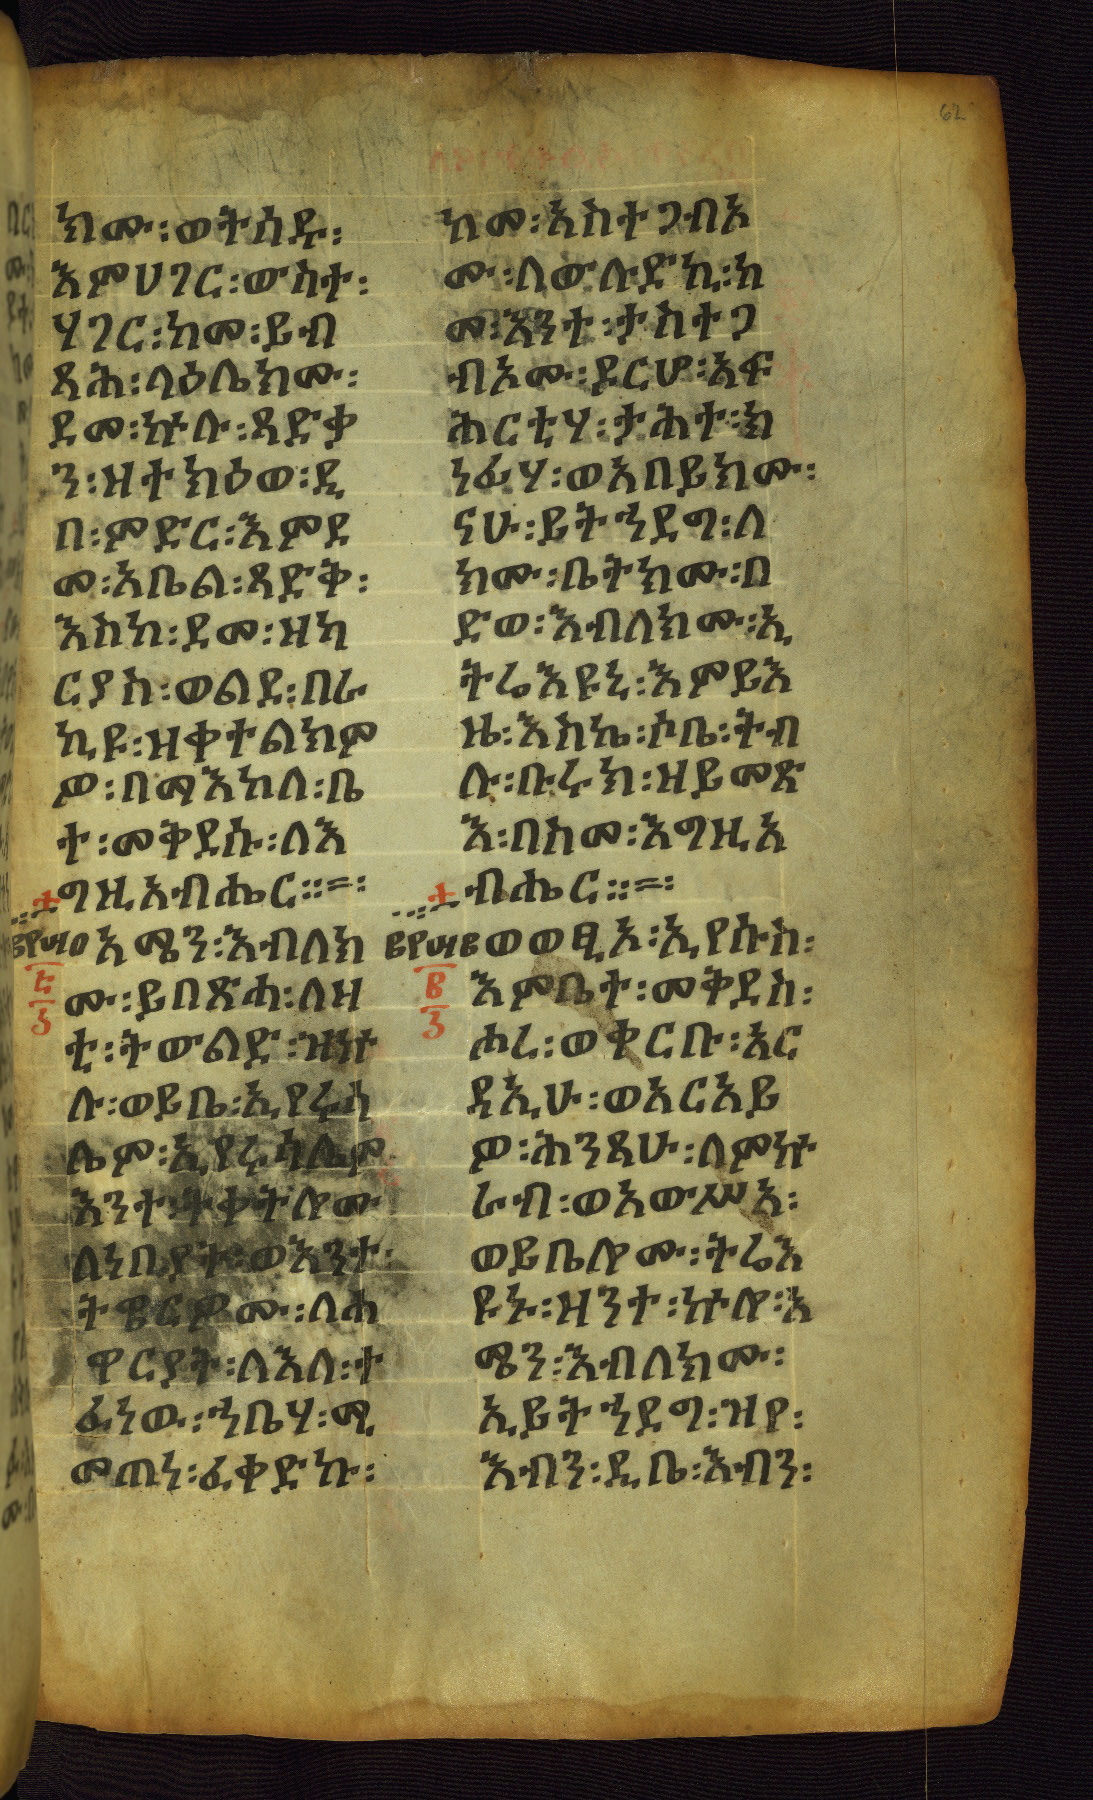 62
ክሙ፡ወትሰድዱ፡
እምሀገር፡ውስተ፡
ሃገር፡ከመ፡ይብ
ጻሕ፡ላዕሌክሙ፡
ደመ፡ኵሉ፡ጻድቃ
ን፡ዘተክዕወ፡ዲ
በ፡ምድር፡እምደ
መ፡አቤል፡ጻድቅ፡
እስከ፡ደመ፡ዘካ
ርያስ፡ወልደ፡በራ
ኪዩ፡ዘቀተልክም
ዎ፡በማእከለ፡ቤ
ተ፡መቅደሱ፡ለእ
ግዚአብሔር።=፡
አሜን፡እብለክ
ሙ፡ይበጽሐ፡ለዛ
ቲ፡ትውልድ፡ዝኵ
ሉ፡ወይቤ፡ኢየሩሳ
ሌም፡ኢየሩሳሌም
እንተ፡ትቀትሎሙ
ለነቢያት፡ወእንተ፡
ትዌርዎሙ፡ለሐ
ዋርያት፡ለእለ፡ተ
ፈነው፡ኀቤሃ፡ሚ
መጠነ፡ፈቀድኩ፡
ከመ፡አስተጋብኦ
ሙ፡ለውሉድኪ፡ከ
መ፡እንተ፡ታስተጋ
ብኦሙ፡ደርሆ፡አፍ
ሕርቲሃ፡ታሕተ፡ክ
ነፊሃ፡ወአበይክሙ፡
ናሁ፡ይትኀደግ፡ለ
ክሙ፡ቤትክሙ፡በ
ድወ፡እብለክሙ፡ኢ
ትሬእዩኒ፡እምይእ
ዜ፡እስከ፡ሶቤ፡ትብ
ሉ፡ቡሩክ፡ዘይመጽ
እ፡በስመ፡እግዚአ
ብሔር።=፡
ወወፂኦ፡ኢየሱስ፡
እምቤተ፡መቅደስ፡
ሖረ፡ወቀርቡ፡አር
ዳኢሁ፡ወአርአይ
ዎ፡ሕንጻሁ፡ለምኵ
ራብ፡ወአውሥአ፡
ወይቤሎሙ፡ትሬእ
ዩኑ፡ዘንተ፡ኵሎ፡አ
ሜን፡እብለክሙ፡
ኢይትኀደግ፡ዝየ፡
እብን፡ዲቤ፡እብን፡